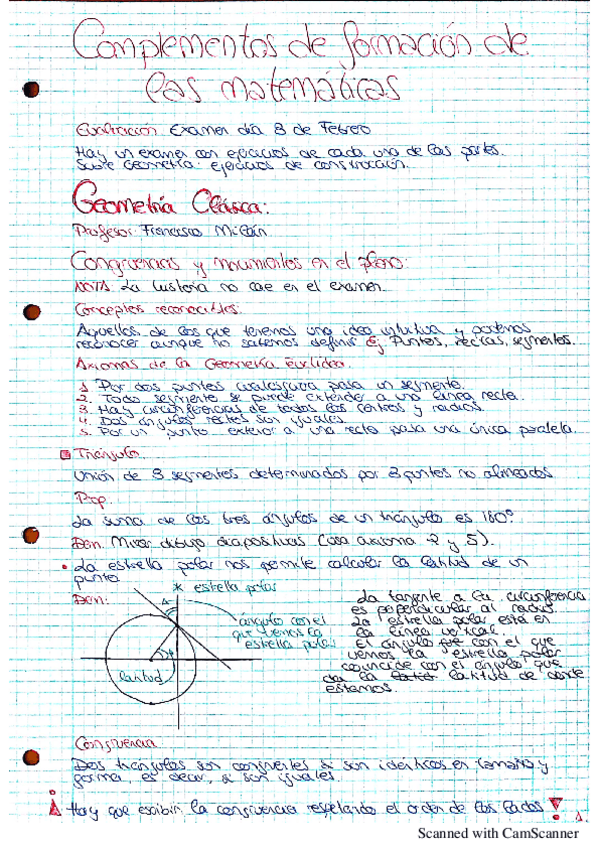 Complementos de formación de
las matemáticas
Evaluación: Examen día 8 de Febrero
Hay un examen con ejercicios de cada una de las partes.
Sobre Geometría: ejercicios de construcción.
Geometría Clásica:
Profesor: Francisco
Congruencias y movimientos en el plano:
NOTA: La historia no cae en el examen.
Conceptos reconocibles:
Aquellos de los que tenemos una idea intuitiva y podemos
reconocer aunque no sabemos definir Ej. Puntos, rectas, segmentos.
Axiomas de la Geometría Euclídea.
1. Por dos puntos cualesquiera pasa un segmento.
2. Todo segmento se puede extender a una línea recta.
3. Hay circunferencias de todos los centros y radios.
4. Dos ángulos rectos son iguales.
5. Por un punto exterior a una recta pasa una única paralela.
Triángulo
Unión de 3 segmentos determinados por 3 puntos no alineados
Prop.
La suma de los tres ángulos de un triángulo es 180º
Dem. Mirar dibujo diapositivas (usa axioma 2 y 5).
• La estrella polar nos permite calcular la latitud de un
punto
Dem:
estrella polar
ángulo con el
que vemos la
estrella polar
latitud
La tangente a la circunferencia
es perpendicular al radio.
La estrella polar está en
la línea vertical.
El ángulo con el que
vemos la estrella polar
coincide con el ángulo que
da la latitud de donde
estamos.
Congruencia
Dos triángulos son congruentes si son idénticos en tamaño y
forma, es decir, si son iguales.
Hay que escribir la congruencia respetando el orden de los lados
1.
Scanned with CamScanner